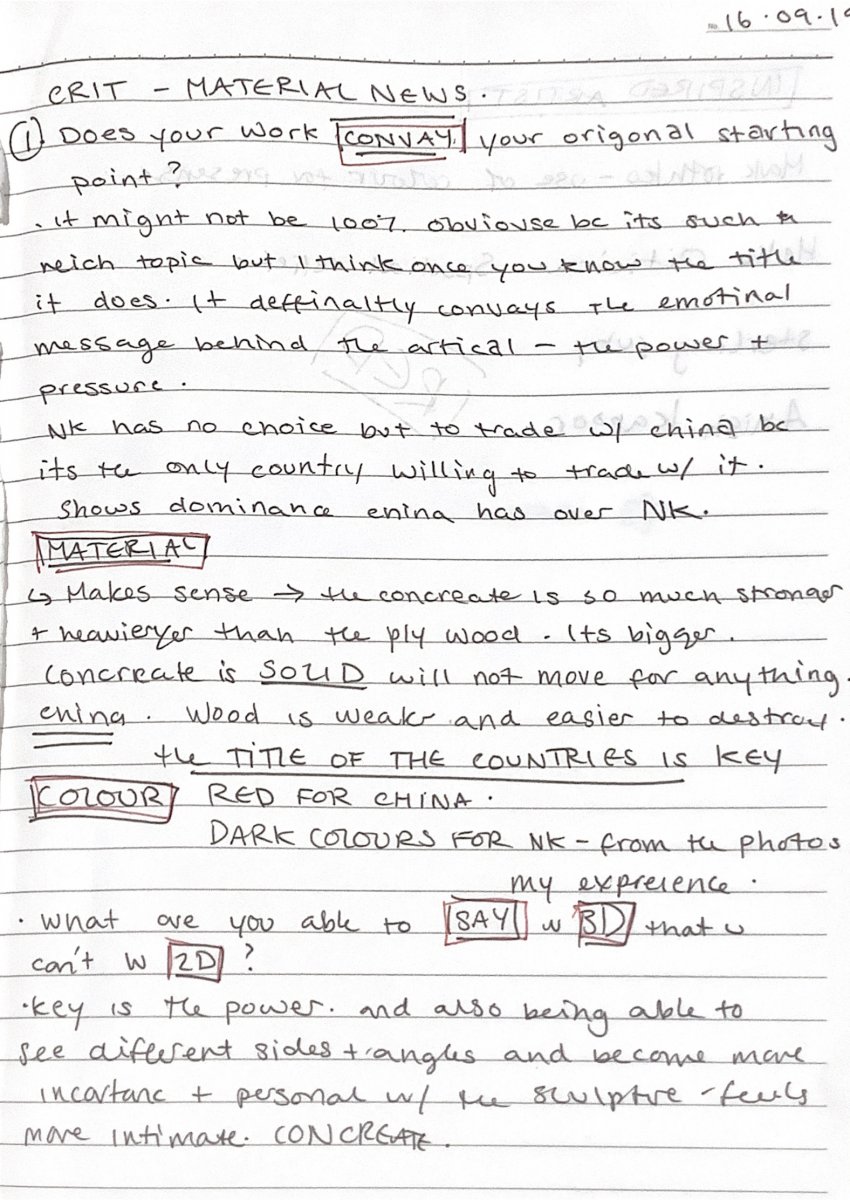 No. 16.09.19
CRIT - MATERIAL NEWS.
① Does your work CONVAY. your origonal starting
point?
. it might not be 100% obviouse bc its such a
neich topic but I think once you know the title
it does. It deffinaltly convays the emotinal
message behind the artical - the power +
pressure.
NK has no choice but to trade w/ china bc
its the only country willing to trade w/ it.
Shows dominance china has over NK.
MATERIAL
↳ Makes sense → the concreate is so much stronger
+ heavieryer than the ply wood. Its bigger.
Concreate is SOLID will not move for anything.
china. Wood is weakr and easier to destroy.
the TITLE OF THE COUNTRIES IS KEY
COLOUR RED FOR CHINA.
DARK COLOURS FOR NK - from the photos
my exprerience.
. What are you able to SAY w 3D that u
can't w 2D ?
. key is the power. and also being able to
see different sides + angles and become more
+ personal w/ the sculptre - feels
more intimate. CONCREATE.